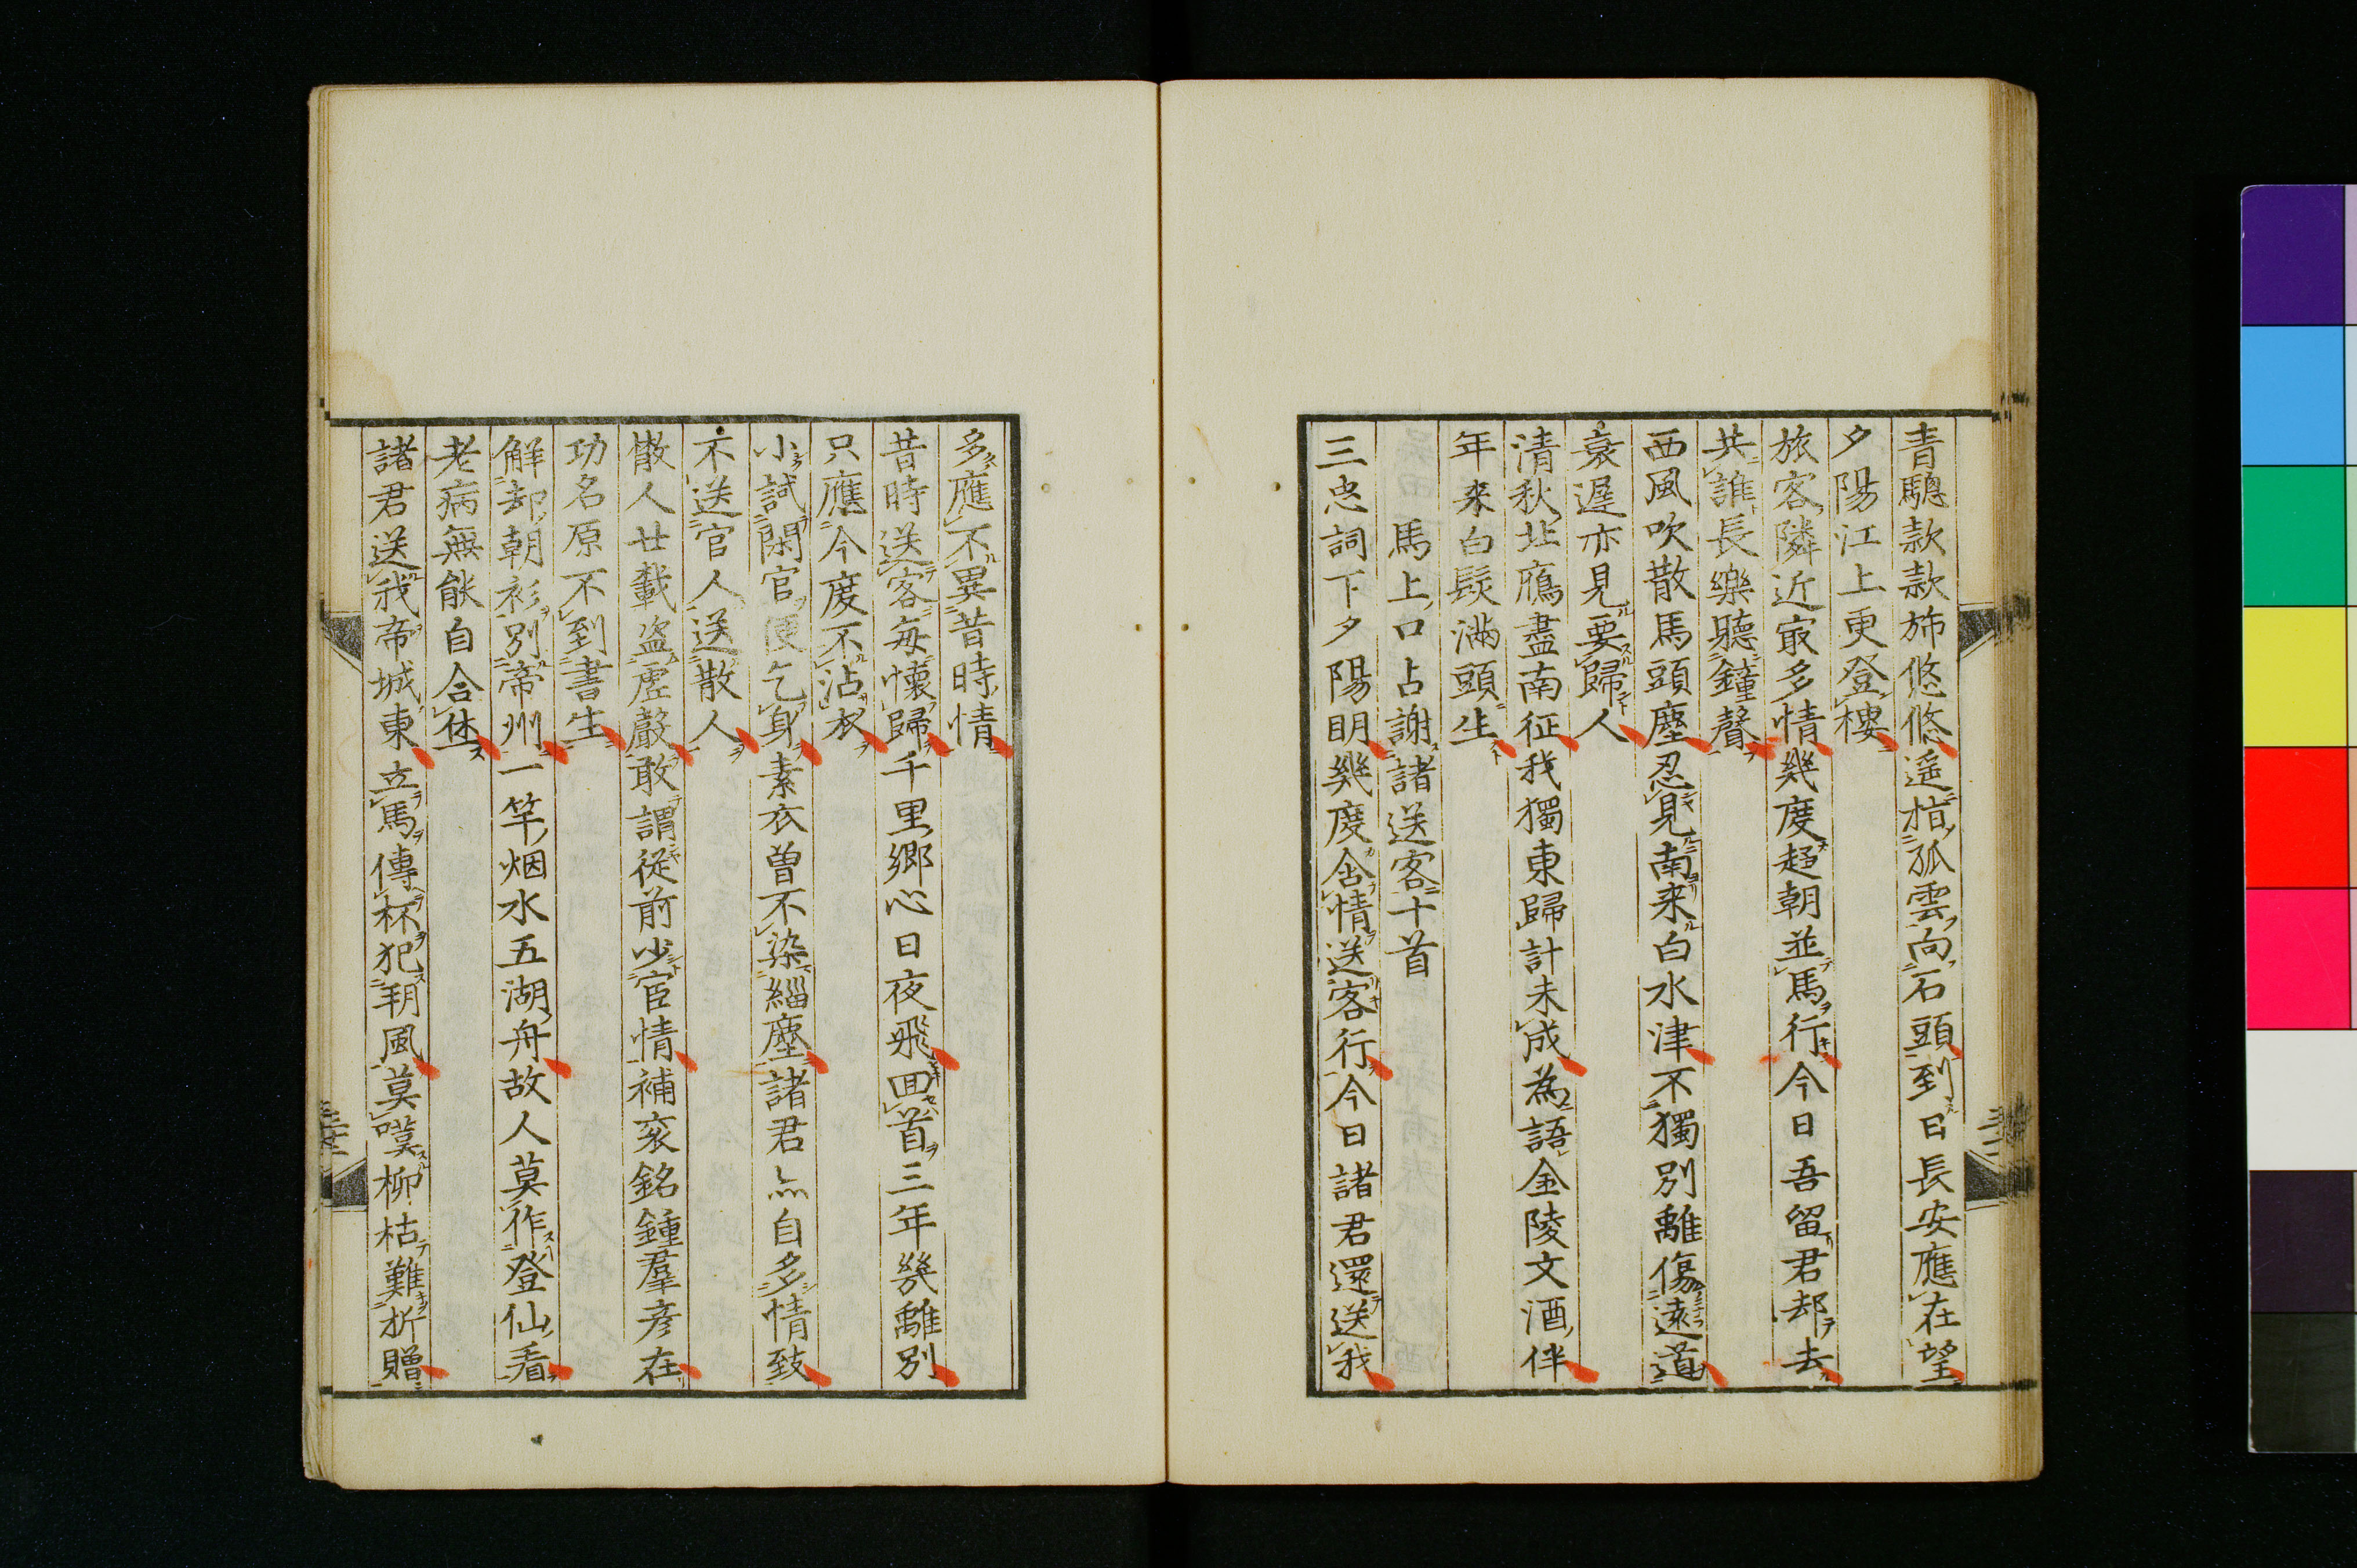 青驄款款斾悠悠遥指孤雲向石頭到日長安應在望
夕陽江上更登樓
旅客隣近㝡多情幾度趍朝並馬行今日吾留君却去
共誰長樂聽鐘聲
西風吹散馬頭塵忍見南来白水津不獨別離傷遠道
衰遲亦見要歸人
清秋北鴈盡南征我獨東歸計未成為語金陵文酒伴
年来白髮滿頭生
馬上口占謝諸送客十首
三忠詞下夕陽明幾度含情送客行今日諸君還送我
多應不異昔時情
昔時送客每懷歸千里郷心日夜飛囬首三年幾離別
只應今度不沾衣
小試閑官便乞身素衣曽不染緇塵諸君亦自多情致
不送官人送散人
散人廿載盗虚嚴敢謂従前少宦情補衮銘鍾羣彦在
功名原不到書生
解却朝衫別帝州一竿烟水五湖舟故人莫作登仙看
老病無能自合休
諸君送我帝城東立馬傳杯犯朔風莫嘆柳枯難折贈